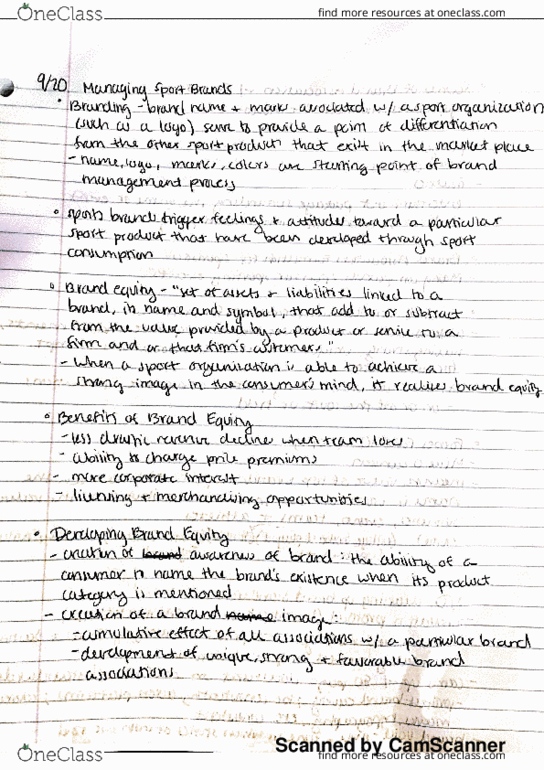 OneClass
find more resources at oneclass.com
9/20 Managing Sport Brands
• Branding - brand name + marks associated w/ a sport organization
(such as a logo) serve to provide a point of differentiation
from the other sport products that exist in the market place
- name, logo, marks, colors are starting point of brand
management process
• sports brands trigger feelings + attitudes toward a particular
sport product that have been developed through sport
consumption
• Brand equity - "set of assets + liabilities linked to a
brand, its name and symbol, that add to or subtract
from the value provided by a product or service to a
firm and or that firm's customers."
- when a sport organization is able to achieve a
strong image in the consumer's mind, it realizes brand equity
• Benefits of Brand Equity
- less drastic revenue decline when team loses
- ability to charge price premiums
- more corporate interest
- licensing + merchandising opportunities
• Developing Brand Equity
- creation of brand awareness of brand: the ability of a
consumer to name the brand's existence when its product
category is mentioned
- creation of a brand name image:
- cumulative effect of all associations w/ a particular brand
- development of unique, strong + favorable brand
associations
Scanned by CamScanner
OneClass
find more resources at oneclass.com